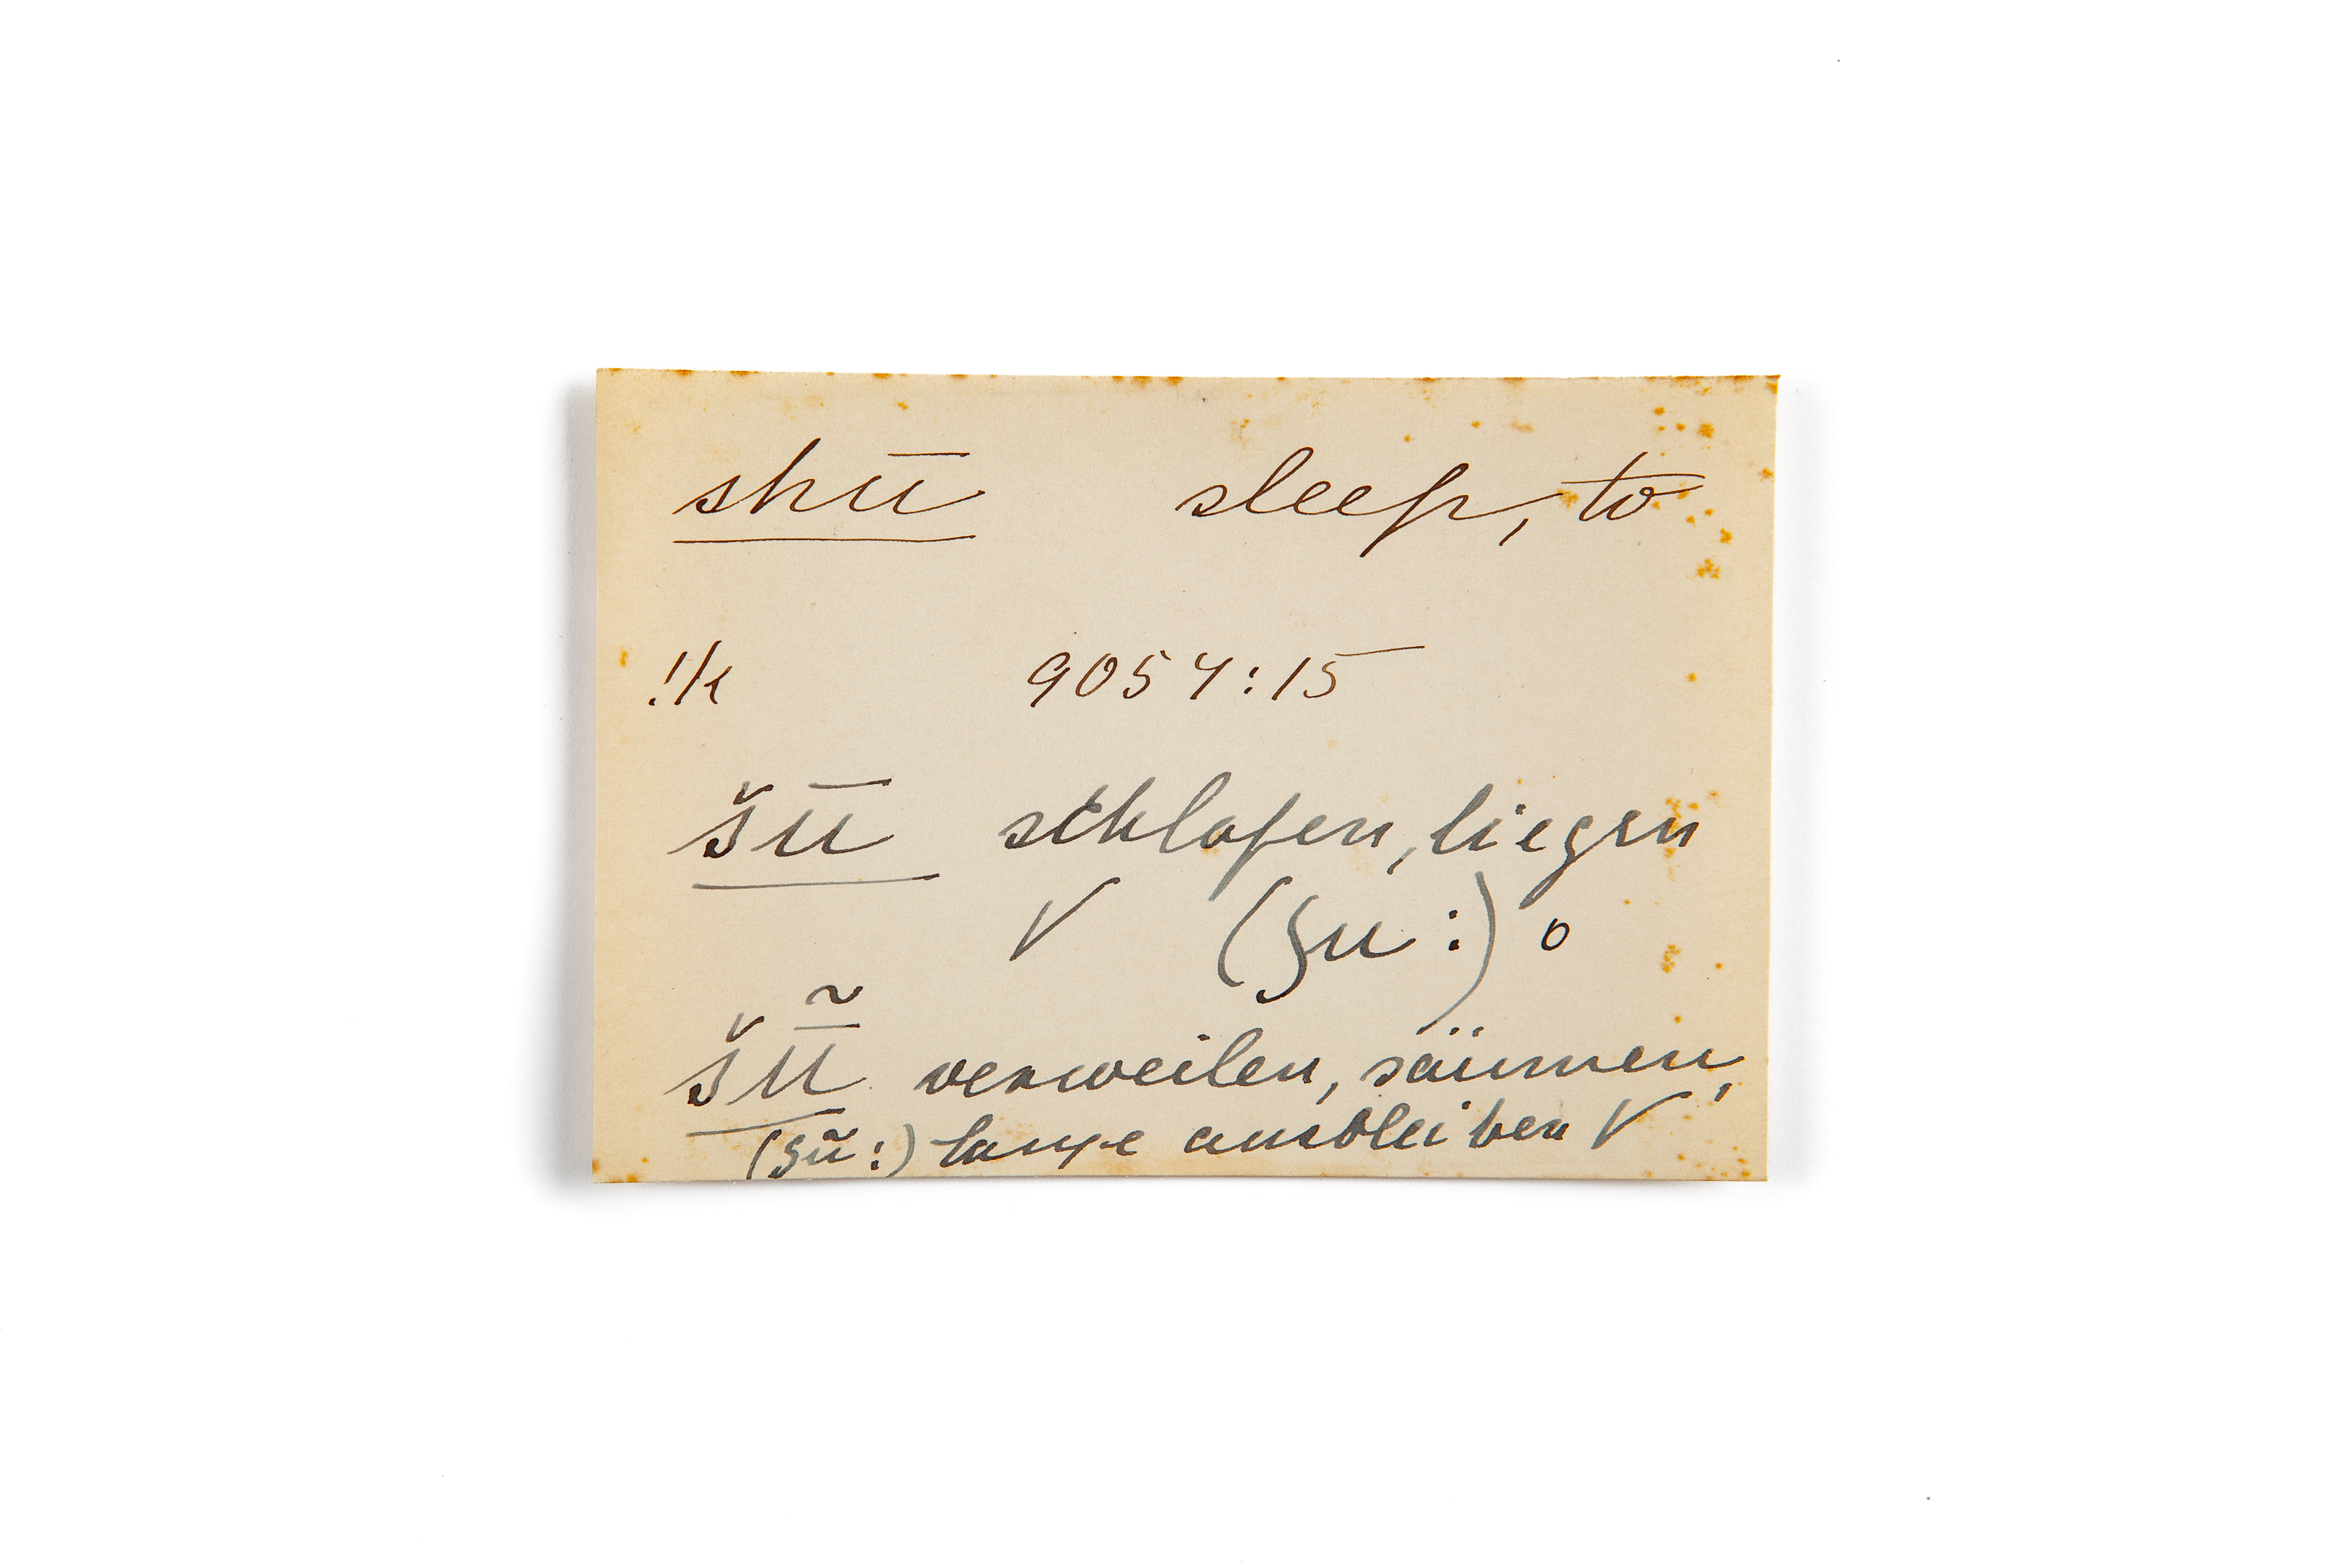 shū sleep, to
!k 9054:15
šū schlafen, liegen
V (ʃu :) o
šū̃ verweilen, säumen,
(ʃũ :) lange ausbleiben V